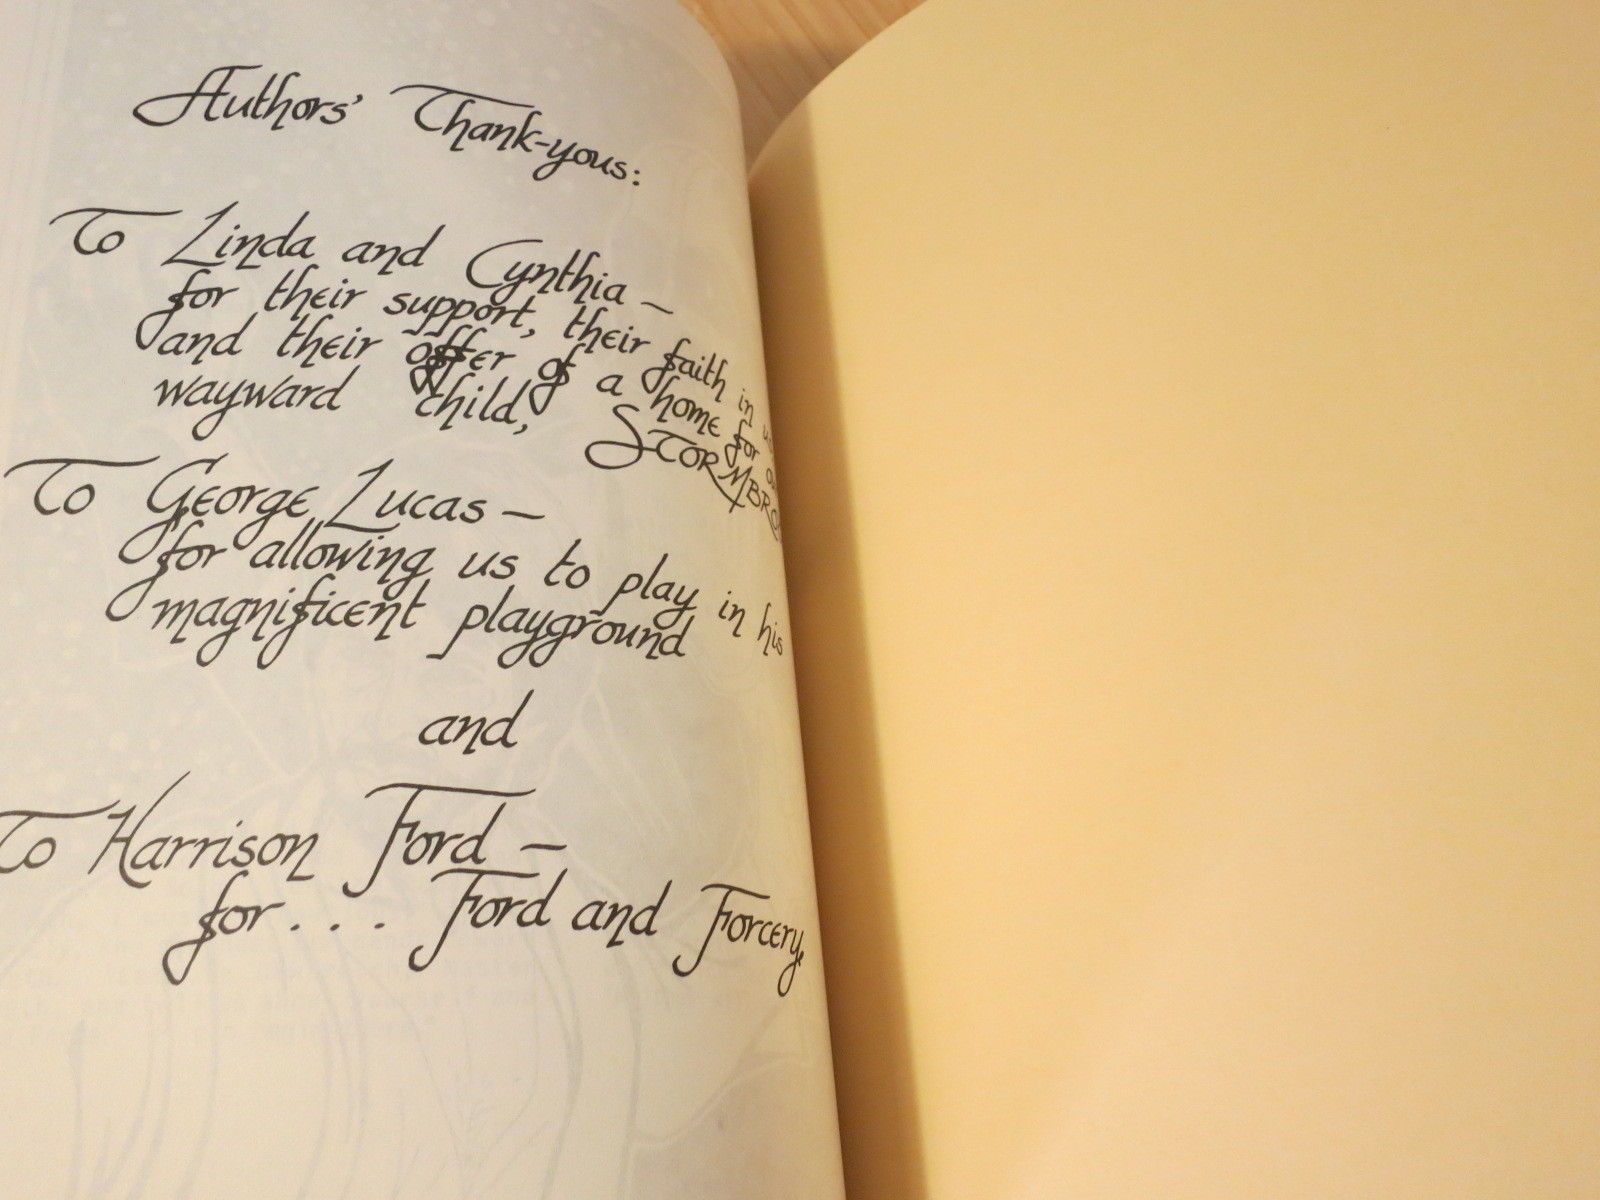 Authors' Thank-yous:
To Linda and Cynthia —
for their support, their faith in
and their offer of a home for
wayward child,
To George Lucas —
for allowing us to play in his
magnificent playground
and
To Harrison Ford —
for . . . Ford and Forcery.